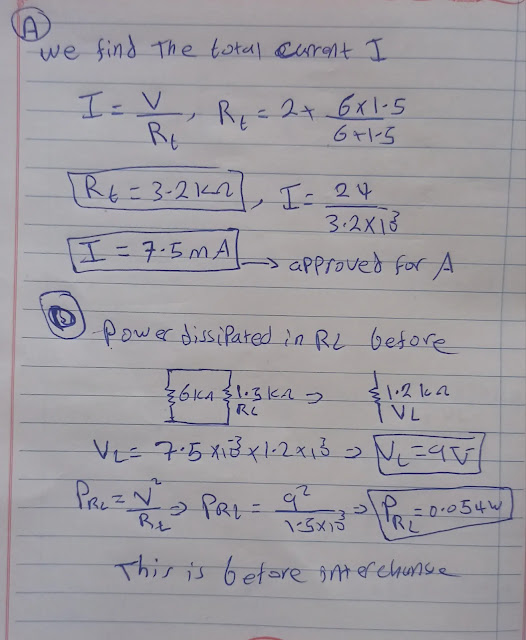 A
We find The total current I
I = V/Rt , Rt = 2 + 6x1.5/6+1.5
Rt = 3.2KΩ , I = 24/3.2x10³
I = 7.5mA → approved for A
D Power dissipated in RL before
6KΩ 1.5KΩ RL ⇒ 1.2KΩ VL
VL = 7.5x10⁻³ x 1.2x10³ ⇒ VL = 9V
PRL = V²/RL ⇒ PRL = 9²/1.5x10³ ⇒ PRL = 0.054W
This is before interchange